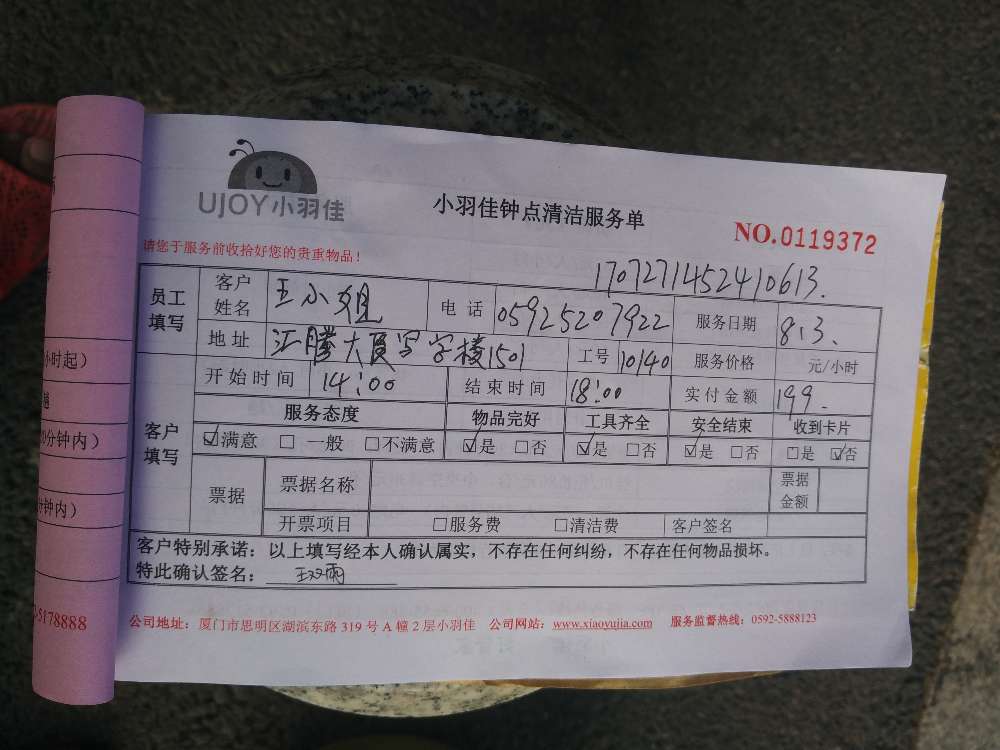 UJOY小羽佳
小羽佳钟点清洁服务单
NO.0119372
请您于服务前收拾好您的贵重物品！
1707271452410613.
员工填写 客户姓名 王小姐 电话 05925207922 服务日期 8.3.
地址 汇腾大厦写字楼1501 工号 10140 服务价格 元/小时
开始时间 14:00 结束时间 18:00 实付金额 199.
客户填写 服务态度 物品完好 工具齐全 安全结束 收到卡片
☑满意 □一般 □不满意 ☑是 □否 ☑是 □否 ☑是 □否 □是 ☑否
票据 票据名称 票据金额
开票项目 □服务费 □清洁费 客户签名
客户特别承诺：以上填写经本人确认属实，不存在任何纠纷，不存在任何物品损坏。
特此确认签名：王双雨
公司地址：厦门市思明区湖滨东路319号A幢2层小羽佳 公司网站：www.xiaoyujia.com 服务监督热线：0592-5888123
小时起）
分钟内）
分钟内）
-5178888